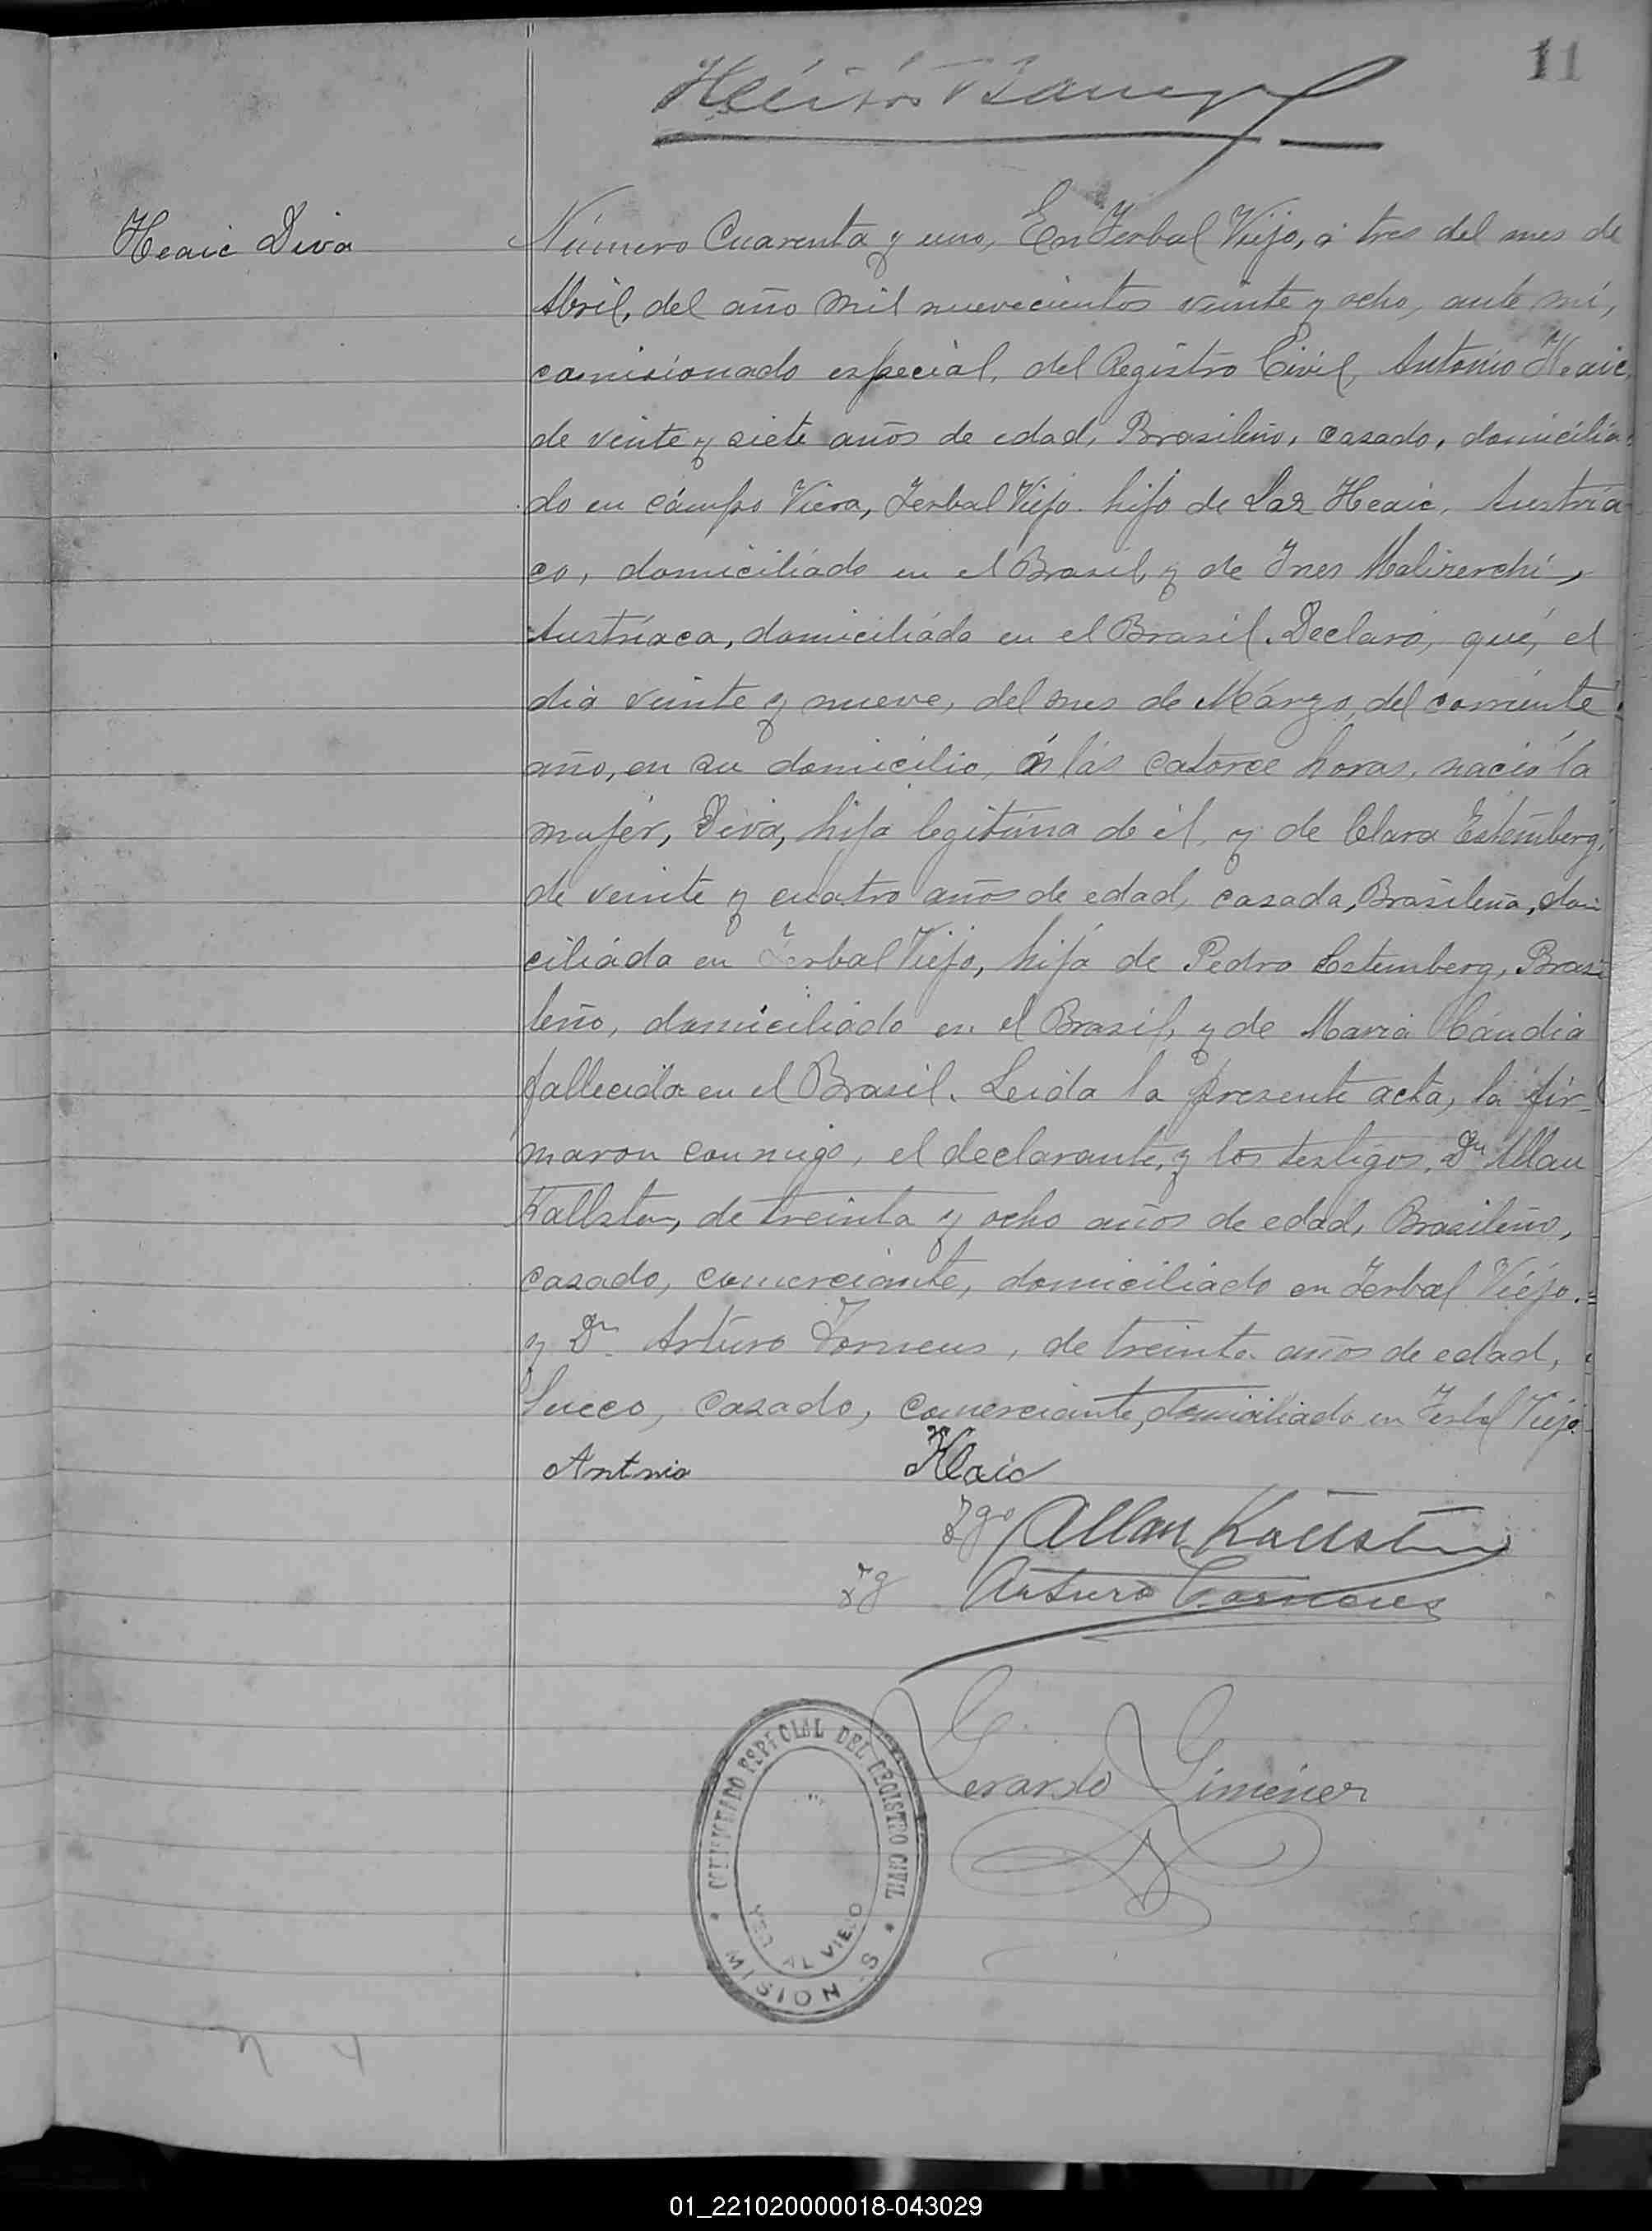 11
Heaic Diva
Número Cuarenta y uno, En Yerbal Viejo, á tres del mes de
Abril, del año mil nuevecientos veinte y ocho, ante mí,
comisionado especial, del Registro Civil, Antonio Heaic,
de veinte y siete años de edad, Brasileño, casado, domicilia-
do en cámpo Viera, Yerbal Viejo. hijo de Laz Heaic, Austria-
co, domiciliádo en el Brasil, y de Ines Malirerchi,
Austríaca, domiciliádo en el Brasil. Declaró, qué, el
dia veinte y nueve, del mes de Marzo, del corriente
año, en su domicilio, á lás catorce horas, nació la
mujér, Diva, hija legitima de él, y de Clara Estemberg,
de veinte y cuatro años de edad, casada, Brasileña, domi
ciliáda en Yerbal Viejo, hija de Pedro Estemberg, Brasi
leño, domiciliádo en el Brasil, y de Maria Cándia
fallecida en el Brasil. Leida la presente acta, la fir-
maron conmigo, el declarante, y los testigos, Dn Allan
Kallsten, de treinta y ocho años de edad, Brasileño,
casado, comerciante, domiciliado en Yerbal Viéjo.
y Dn Arturo Torneus, de treinta años de edad,
Sueco, casado, comerciante, domiciliado en Yerbal Viejo
Antnio Klaic
Tgo Allan Kallsten
Tg Arturo Torneus
Gerardo Giménez
COMISIONADO ESPECIAL DEL REGISTRO CIVIL
YERBAL VIEJO
MISIONES
01_221020000018-043029